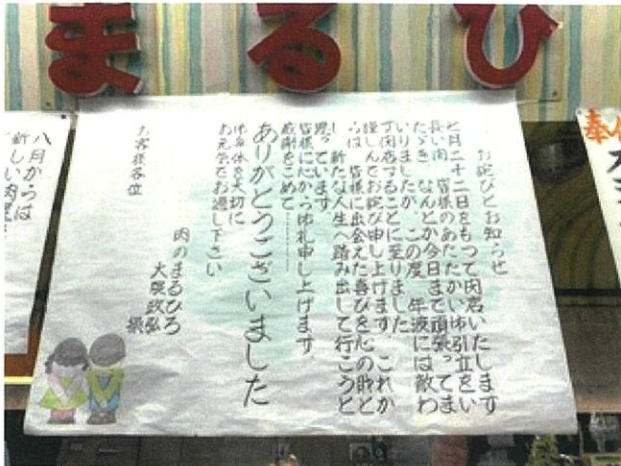 まるひ
お詫びとお知らせ
七月二十二日をもって閉店いたします
長い間 皆様のあたたかい御引立をい
ただき、なんとか今日まで頑張ってま
いりましたが、この度 年波には敵わ
ず閉店することに至りました
謹しんでお詫び申し上げます。これか
らは 皆様に出会えた喜びを心の財と
し 新たな人生へ踏み出して行こうと
思っています
皆様に心から御礼申し上げます。
感謝をこめて…………
ありがとうございました
御身体を大切に
お元気でお過し下さい
お客様各位
肉のまるひろ
政弘
操
八月からは
新しい肉屋
奉仕